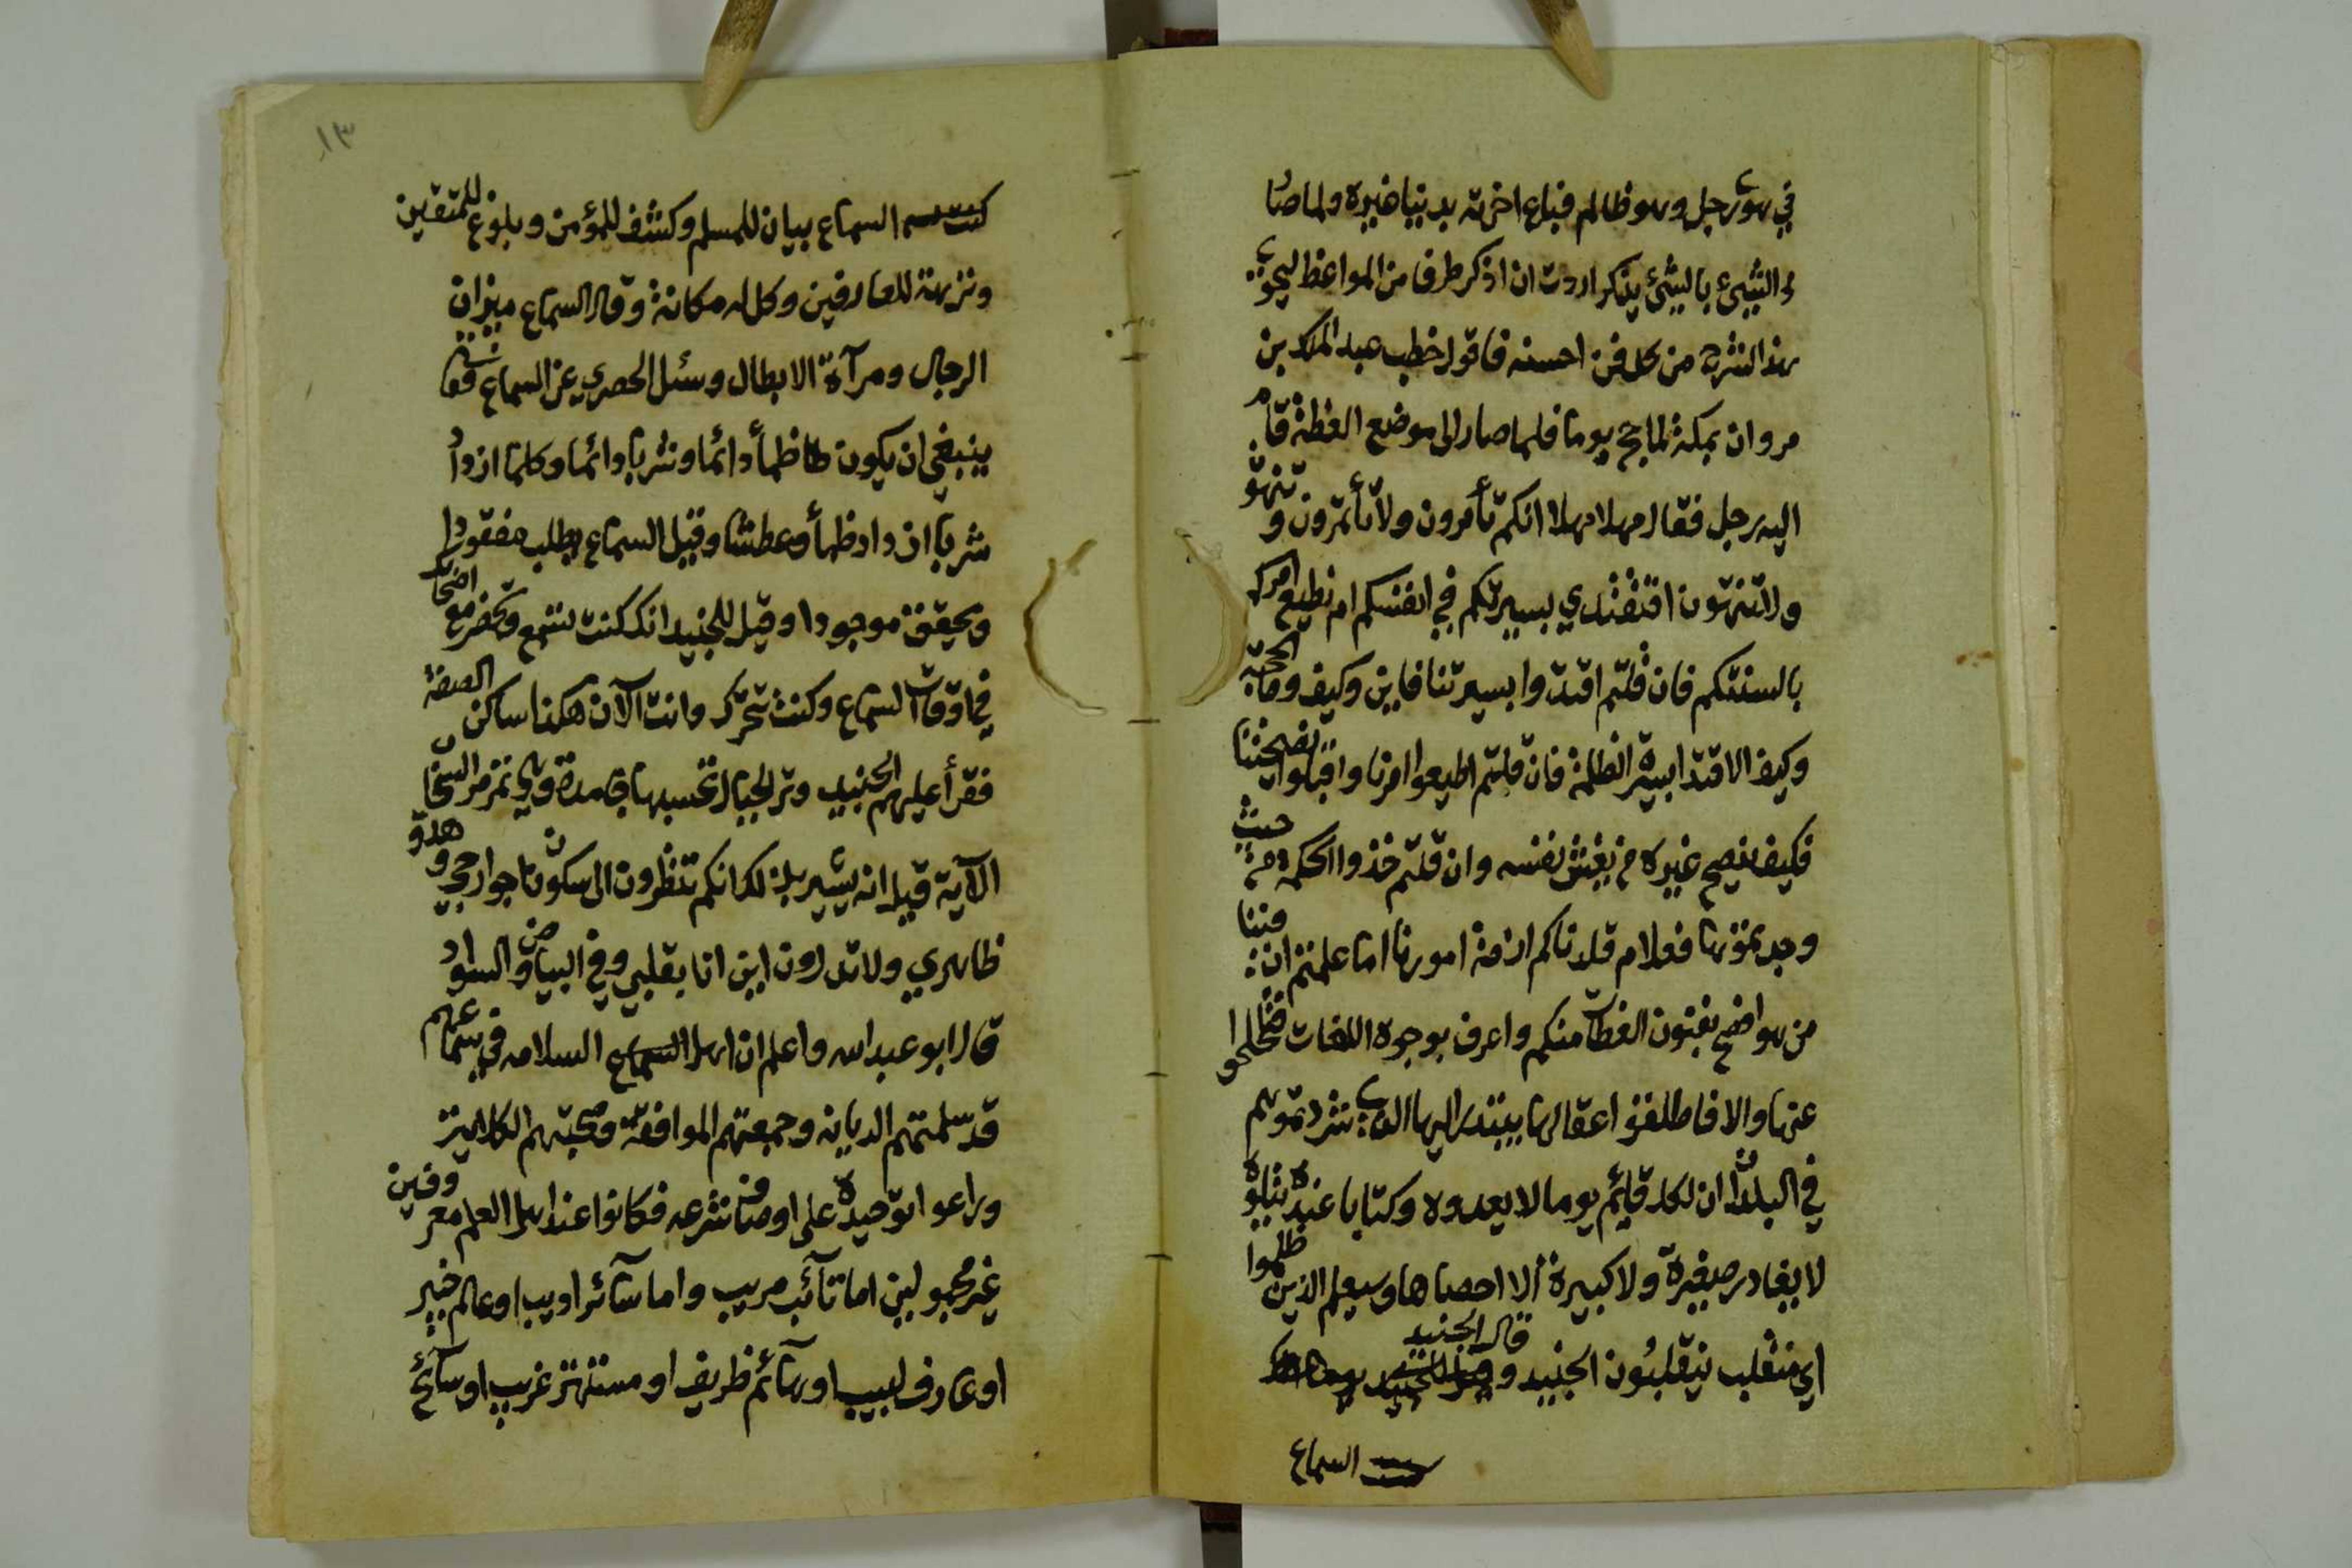 في هوى رجل وهو ظالم فباع اخرته بدنيا غيره ولما صا
ر الشيئ بالشيئ يذكر اردت ان اذكر طرفا من المواعظ ليحوي
هذا الشرح من كل فن احسنه فاقول خطب عبد الملك بن
مروان بمكة لما حج يوما فلما صار الى موضع العظة قام
اليه رجل فقال مهلا مهلا انكم تأمرون ولا تأتمرون وتنهو
ولا تنتهون افنقتدي بسيرتكم في انفسكم ام نطيع امركم
بالسنتكم فان قلتم اقتدوا بسيرتنا فاين وكيف وما الحجة
وكيف الاقتدا بسيرة الظلمة فان قلتم اطيعوا امرنا واقبلوا نصيحتنا
فكيف ينصح غيره من يغش نفسه وان قلتم خذوا الحكمة من حيث
وجدتموها فعلام قلدناكم ازمة امورنا اما علمتم ان فينا
من هو افصح بفنون العظات منكم واعرف بوجوه اللغات فتحلحلوا
عنها والا فاطلقوا عقالها يبتدر اليها الذي شردتموهم
في البلدان ان لكل قايم يوما لا يعدوه وكتابا عنده يتلوه
لا يغادر صغيرة ولا كبيرة الا احصاها وسيعلم الذين ظلموا
اي منقلب ينقلبون الجنيد و قال الجنيد
السماع
١٣
السماع بيان للمسلم وكشف للمؤمن وبلوغ للمتقين
ونزهة للعارفين وكل له مكانة وقال السماع ميزان
الرجال ومرآة الابطال وسئل الحصري عن السماع فقال
ينبغي ان يكون ظمأ دائما وشربا دائما وكلما ازداد
شربا ازداد ظمأ وعطشا وقيل السماع يطلب مفقودا
ويحقق موجودا وقيل للجنيد انك كنت تسمع وتحضر مع اصحابك
في اوقات السماع وكنت تتحرك وانت الآن هكذا ساكن الصفة
فقرأ عليهم الجنيد وترى الجبال تحسبها جامدة وهي تمر مر السحاب
الآية قيل انه يشير بذلك انكم تنظرون الى سكون جوارحي وهدو
ظاهري ولا تدرون اين انا بقلبي وفي البياض والسواد
قال ابو عبد الله واعلم ان اهل السماع السلامه في سماعهم
قد سلمتهم الديانه وجمعتهم الموافقة وصحبتهم
وراعوا توحيده على اوصاف شرعه فكانوا عند اهل العلم معروفين
غير مجهولين اما تآئب مريب واما سآئر اديب او عالم خبير
او عارف لبيب او هآئم ظريف او مستهتر غريب او سآئح